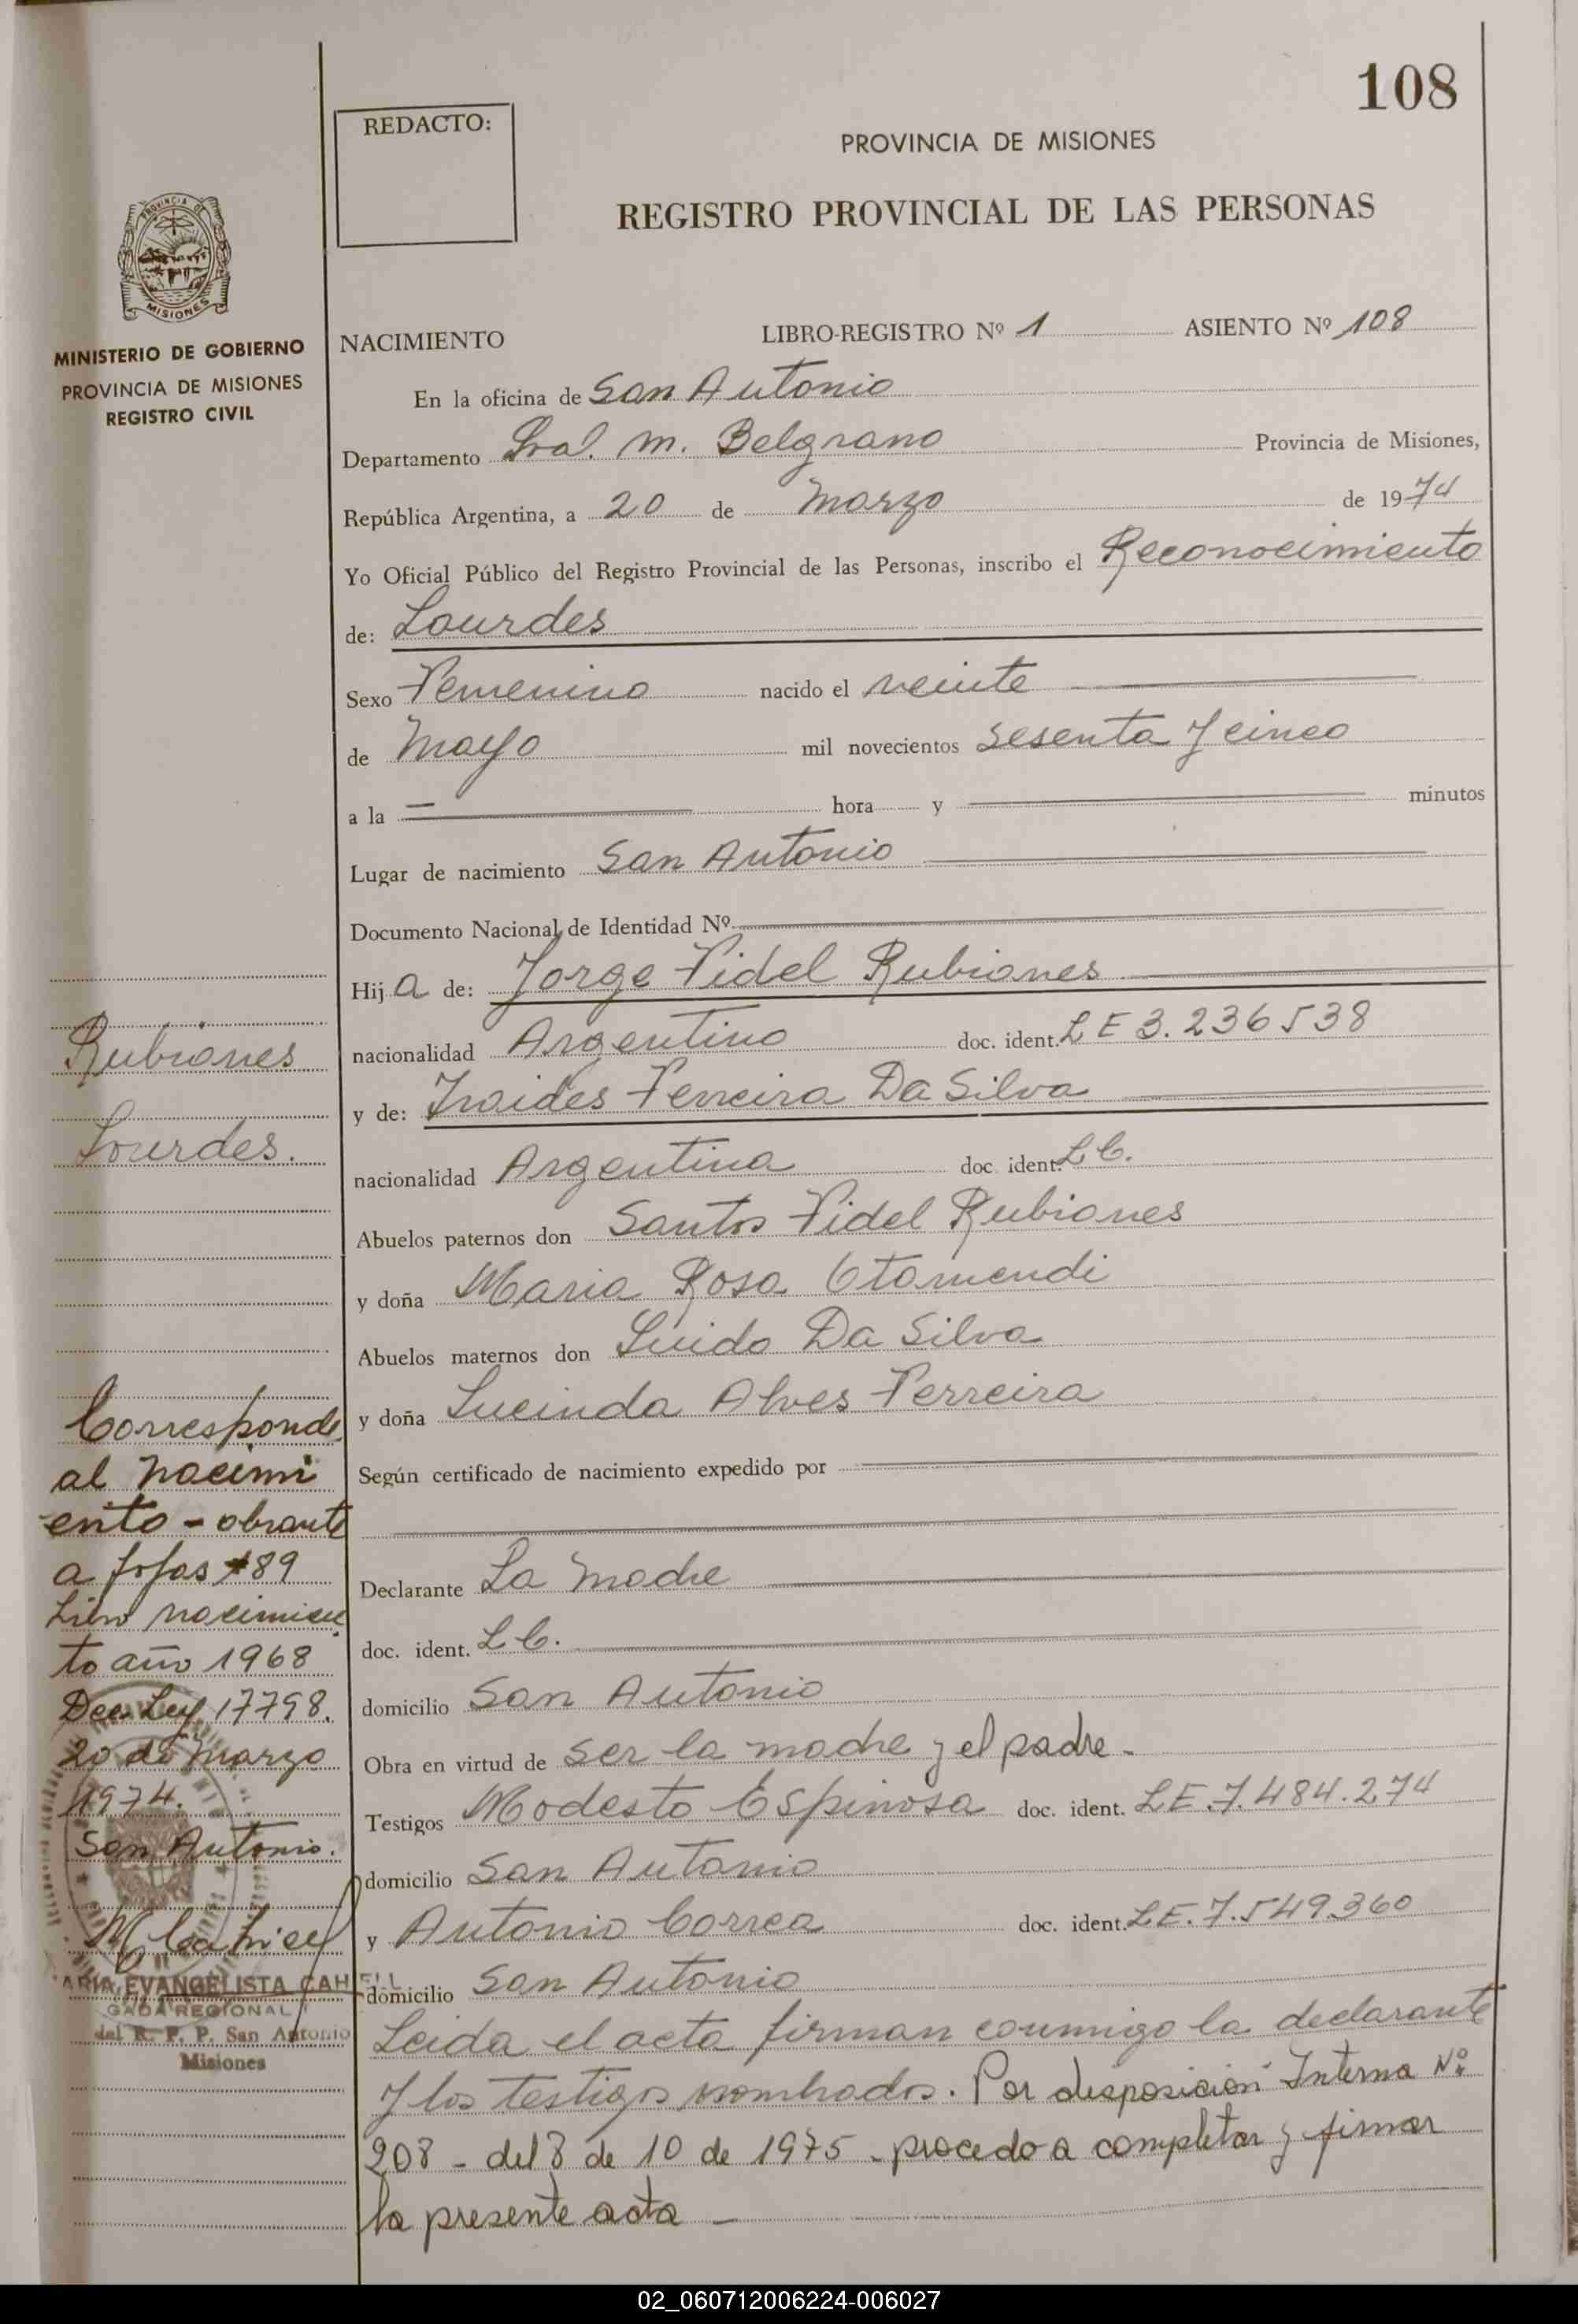 108
REDACTO:
PROVINCIA DE MISIONES
REGISTRO PROVINCIAL DE LAS PERSONAS
PROVINCIA DE
MISIONES
MINISTERIO DE GOBIERNO
PROVINCIA DE MISIONES
REGISTRO CIVIL
NACIMIENTO LIBRO-REGISTRO Nº 1 ASIENTO Nº 108
En la oficina de San Antonio
Departamento Gral. M. Belgrano Provincia de Misiones,
República Argentina, a 20 de Marzo de 1974
Yo Oficial Público del Registro Provincial de las Personas, inscribo el Reconocimiento
de: Lourdes
Sexo Femenino nacido el veinte
de Mayo mil novecientos sesenta y cinco
a la — hora y minutos
Lugar de nacimiento San Antonio
Documento Nacional de Identidad Nº
Hija de: Jorge Fidel Rubiones
nacionalidad Argentino doc. ident. LE 3.236538
y de: Iraides Ferreira Da Silva
nacionalidad Argentina doc. ident. L C.
Abuelos paternos don Santos Fidel Rubiones
y doña Maria Rosa Otamendi
Abuelos maternos don Luido Da Silva
y doña Lucinda Alves Ferreira
Según certificado de nacimiento expedido por
Declarante La Madre
doc. ident. L C.
domicilio San Antonio
Obra en virtud de ser la madre y el padre -
Testigos Modesto Espinosa doc. ident. LE. 7.484.274
domicilio San Antonio
y Antonio Correa doc. ident. L.E. 7.549.360
domicilio San Antonio
Leida el acta firman conmigo la declarante
y los testigos nombrados. Por disposición Interna Nº
208 - del 8 de 10 de 1975 - procedo a completar y firmar
la presente acta -
Rubiones
Lourdes.
Corresponde
al nacimi
ento - obrante
a fojas 89
Libro nacimien
to año 1968
Dec. Ley 17798.
20 de Marzo
1974.
San Antonio.
ARIA EVANGELISTA CAH
GADA REGIONAL
del R. P. P. San Antonio
Misiones
02_060712006224-006027